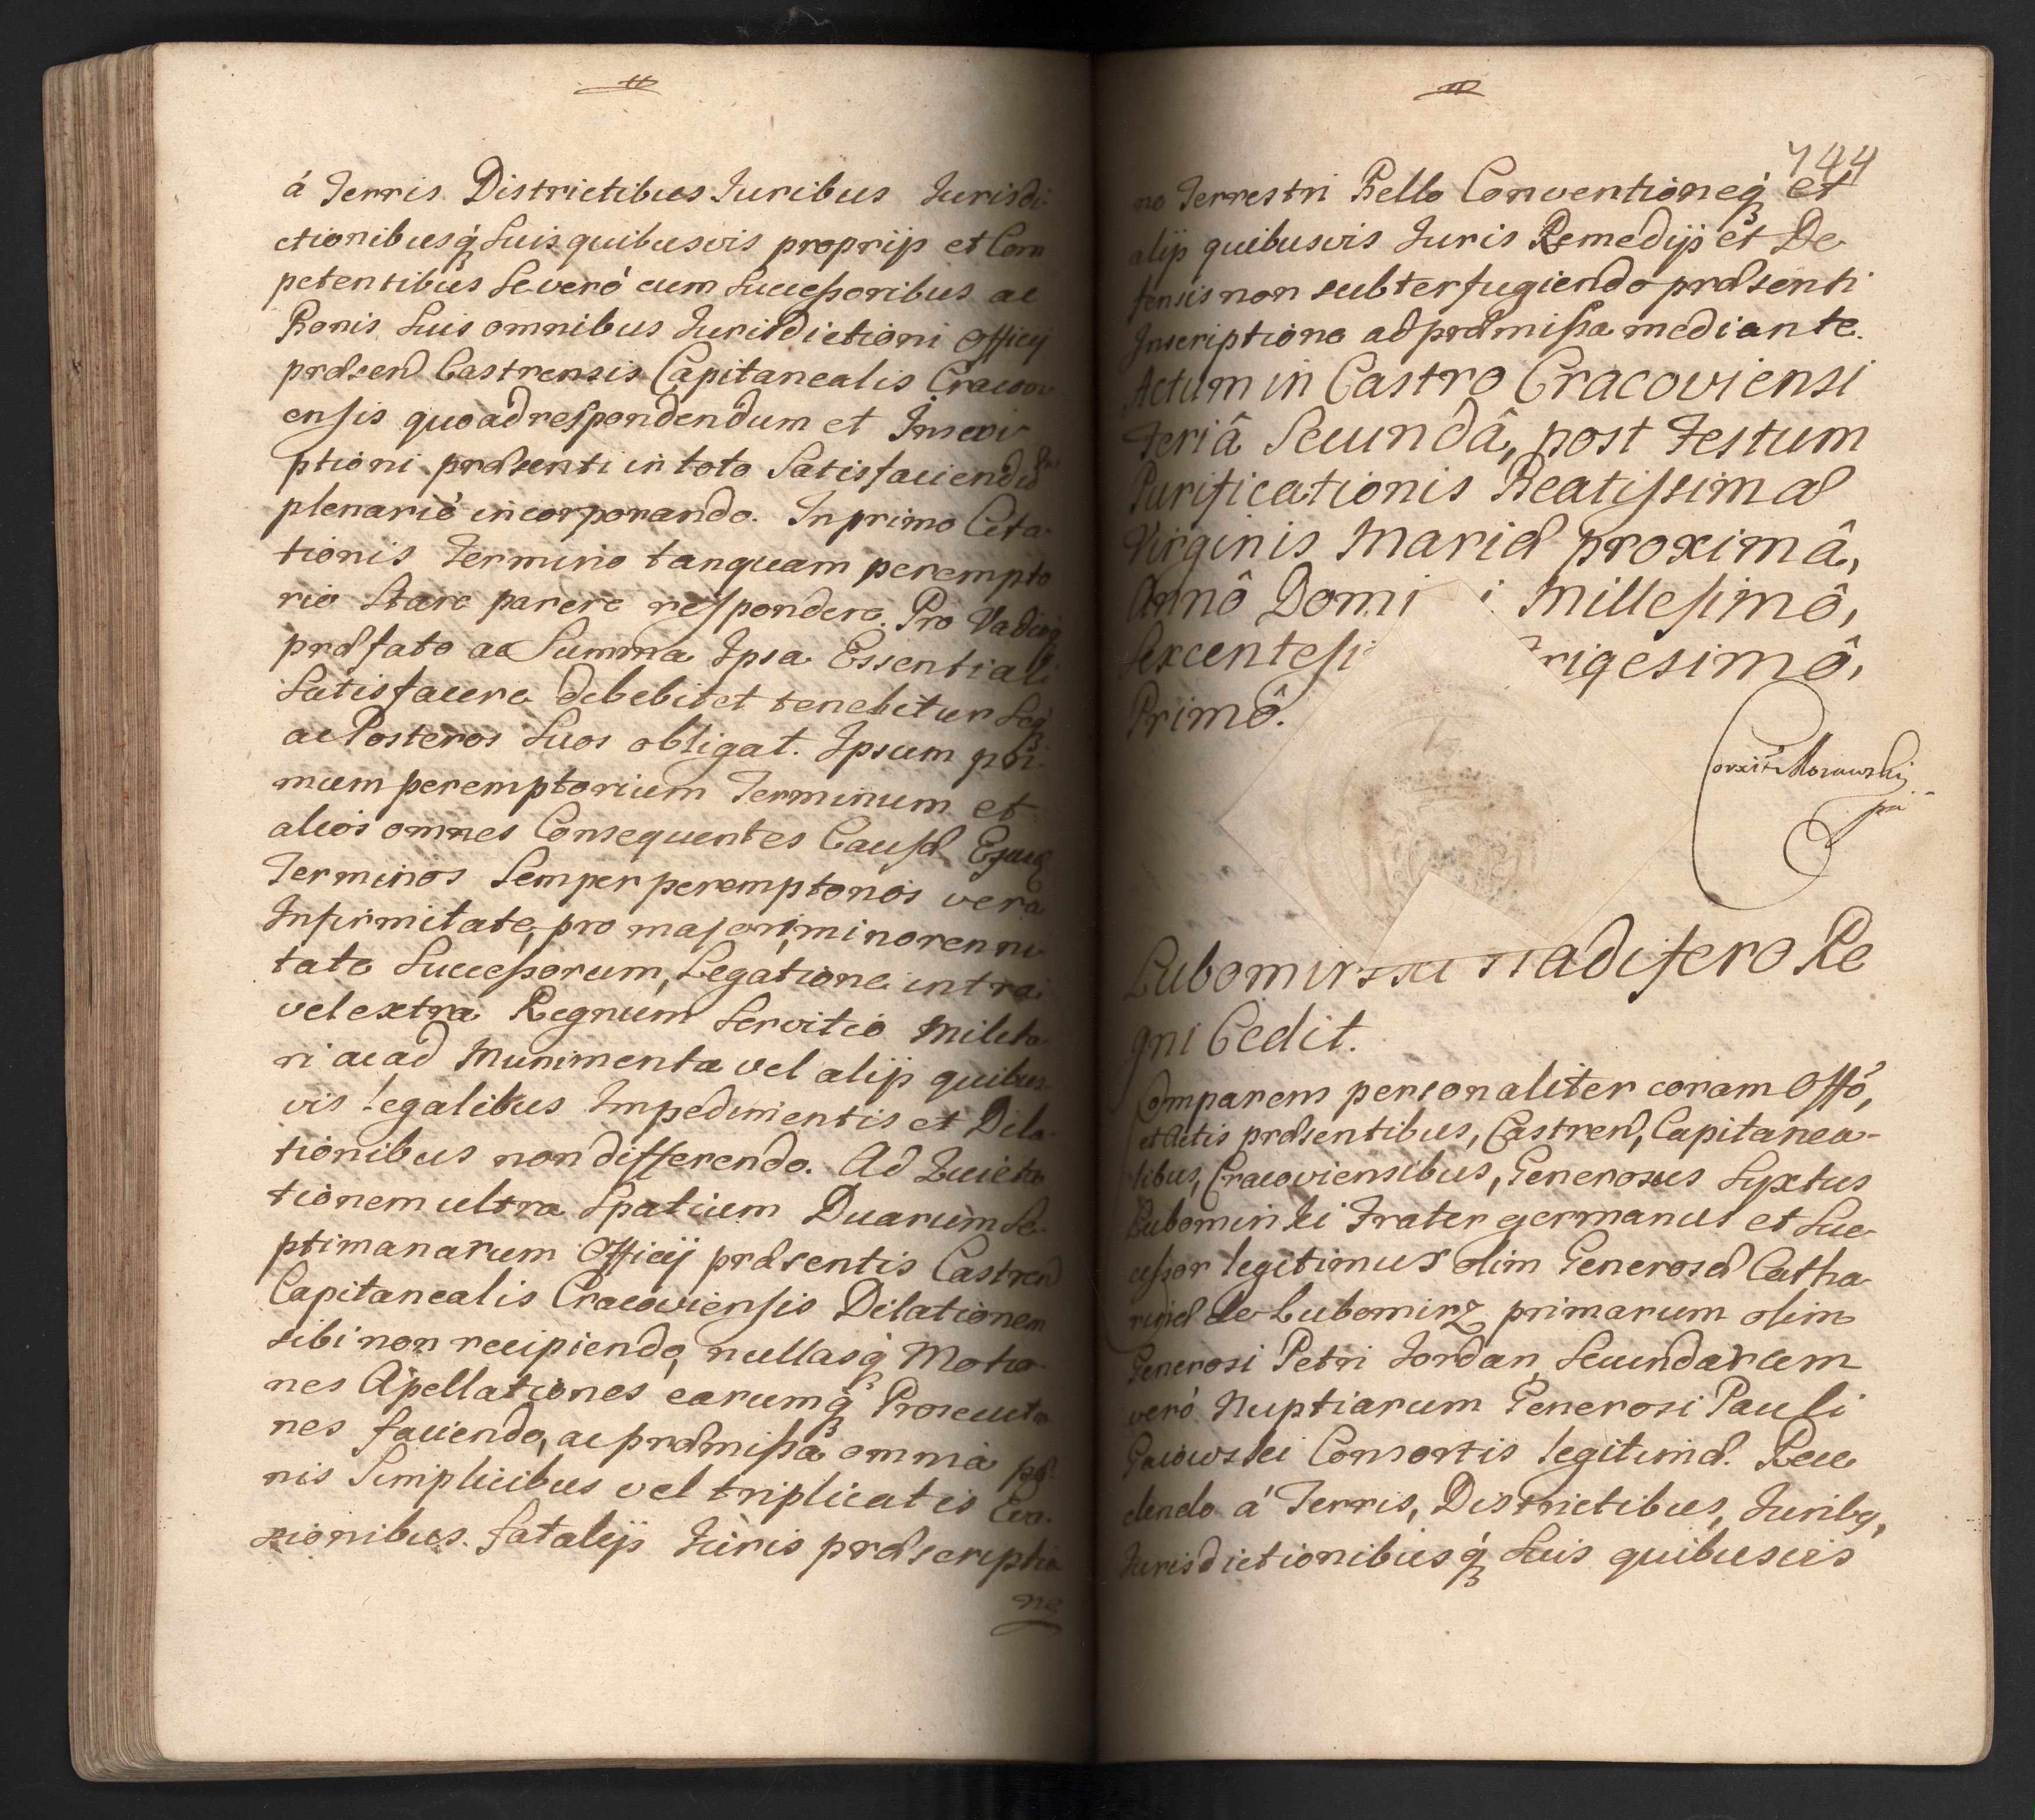 á Terris Districtibus Juribus Jurisdi
ctionibusq́ Suis quibusvis proprijs et Com
petentibus Se veró cum Successoribus ac
Bonis Suis omnibus Jurisdictioni Officij
præsen Castrensis Capitanealis Cracovi
ensis quoad respondendum et Inscri
ptioni præsenti in toto Satisfaciend
plenarió incorporando. In primo Cita
tionis Termino tanquam perempto
rio Stare parere respondere. Pro Vadioq
præfato ac Summa Ipsa Essentiali
Satisfacere debebit et tenebitur Seq
ac Posteros Suos obligat. Ipsum pri
mum peremptorium Terminum et
alios omnes Consequentes Causæ
Terminos Semper peremptorios vera
Infirmitate, pro majori, minorenni
tate Successorum, Legatione intra
vel extra Regnum Servitio Milita
ri ac ad Munimenta vel alijs quibus
vis legalibus Impedimentis et Dila
tionibus non differendo. Ad Quieta
tionem ultra Spatium Duarum Se
ptimanarum Officij præsentis Castren
Capitanealis Cracoviensis Dilationem
sibi non recipiendo, nullasq́ Motio
nes Apellationes earumq́ Prosecutio
nes faciendo, ac præmissa omnia
nis Simplicibus vel triplicatis Eva
sionibus. fatalijs Juris præscriptio
ne
744
ne Terrestri Bello Conventioneq́ et
alijs quibusvis Juris Remedijs et De
fensis non subterfugiendo præsenti
Inscriptione ad præmissa mediante.
Actum in Castro Cracoviensi
Feriâ Secundâ, post Festum
Purificationis Beatissimæ
Virginis Mariæ proximâ,
Annô Domi i Millesimô,
Sexcentesi Trigesimô,
Primô.
Lubomirski adifero Re
gni Cedit.
Comparens personaliter coram Offô,
et Actis præsentibus, Castren, Capitanea-
libus, Cracoviensibus, Generosus Syxtus
Lubominski Frater germanus et Suc
cessor legitimus olim Generosæ Catha
rinæ de Lubomirz primarum olim
Generosi Petri Jordan, Secundarum
veró Nuptiarum Generosi Pauli
Consortis legitimæ. Rece
dendo á Terris, Districtibus, Juribq,
Jurisdictionibusq́ Suis quibusvis